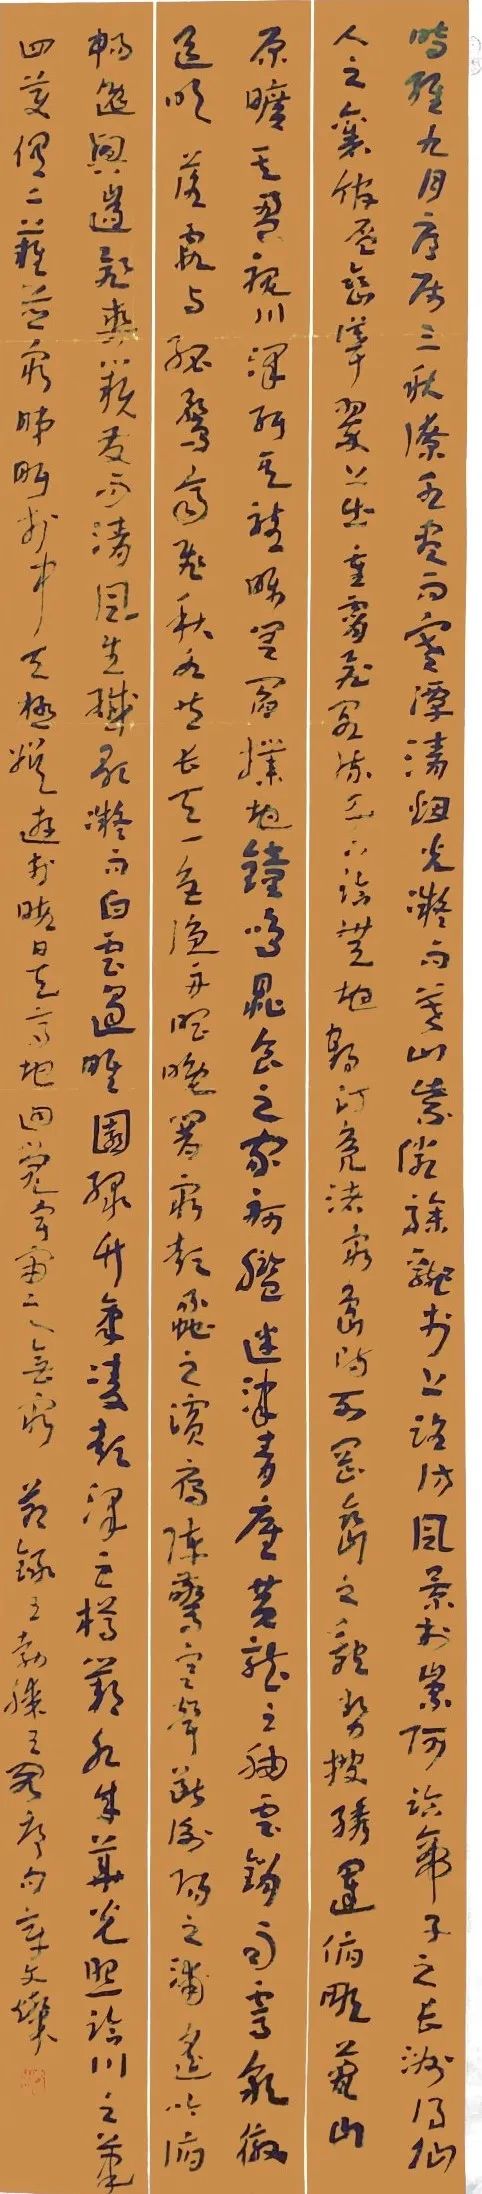 時維九月序屬三秋潦水盡而寒潭清煙光凝而暮山紫儼驂騑於上路訪風景於崇阿臨帝子之長洲得仙
人之舊館層巒聳翠上出重霄飛閣流丹下臨無地鶴汀鳧渚窮島嶼列岡巒之體勢披繡闥俯雕甍山
原曠其盈視川澤紆其駭矚閭閻撲地鐘鳴鼎食之家舸艦迷津青雀黃龍之舳雲銷雨霽彩徹
區明落霞與孤鶩齊飛秋水共長天一色漁舟唱晚響窮彭蠡之濱雁陣驚寒聲斷衡陽之浦遙吟俯
暢逸興遄飛爽籟發而清風生纖歌凝而白雲遏睢園綠竹氣凌彭澤之樽鄴水朱華光照臨川之筆
四美俱二難並窮睇眄於中天極娛遊於暇日天高地迥覺宇宙之無窮 節錄王勃滕王閣序句